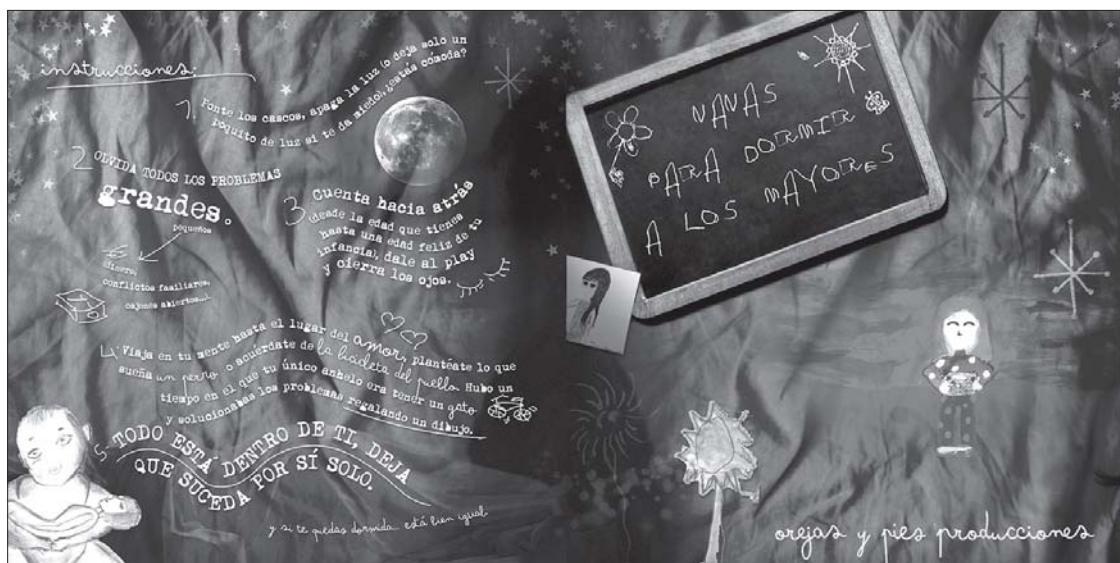 instrucciones:
1 Ponte los cascos, apaga la luz (o deja solo un
poquito de luz si te da miedo), ¿estás cómoda?
2 OLVIDA TODOS LOS PROBLEMAS
grandes.
pequeños
dinero,
conflictos familiares,
cajones abiertos...
3 Cuenta hacia atrás
(desde la edad que tienes
hasta una edad feliz de tu
infancia), dale al play
y cierra los ojos.
4 Viaja en tu mente hasta el lugar del amor, plantéate lo que
sueña un perro o acuérdate de la bicicleta del pueblo. Hubo un
tiempo en el que tu único anhelo era tener un gato
y solucionabas los problemas regalando un dibujo.
5- TODO ESTÁ DENTRO DE TI, DEJA
QUE SUCEDA POR SÍ SOLO.
y si te quedas dormida... está bien igual
NANAS
PARA DORMIR
A LOS MAYORES
orejas y pies producciones